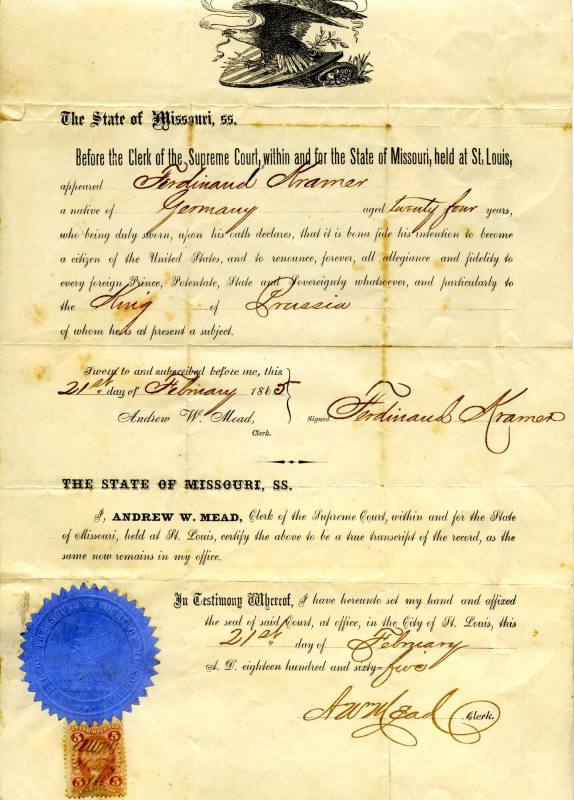 The State of Missouri, ss.
Before the Clerk of the Supreme Court, within and for the State of Missouri, held at St. Louis,
appeared Ferdinand Kramer
a native of Germany aged twenty four years,
who being duly sworn, upon his oath declares, that it is bona fide his intention to become
a citizen of the United States, and to renounce, forever, all allegiance and fidelity to
every foreign Prince, Potentate, State and Sovereignty whatsoever, and particularly to
the King of Prussia
of whom he is at present a subject.
Sworn to and subscribed before me, this
21st day of February 1865
Andrew W. Mead,
Clerk.
Signed Ferdinand Kramer
THE STATE OF MISSOURI, SS.
I, ANDREW W. MEAD, Clerk of the Supreme Court, within and for the State
of Missouri, held at St. Louis, certify the above to be a true transcript of the record, as the
same now remains in my office.
In Testimony Whereof, I have hereunto set my hand and affixed
the seal of said Court, at office, in the City of St. Louis, this
21st day of February
A. D. eighteen hundred and sixty-five
A W Mead Clerk.
5 5
5 5